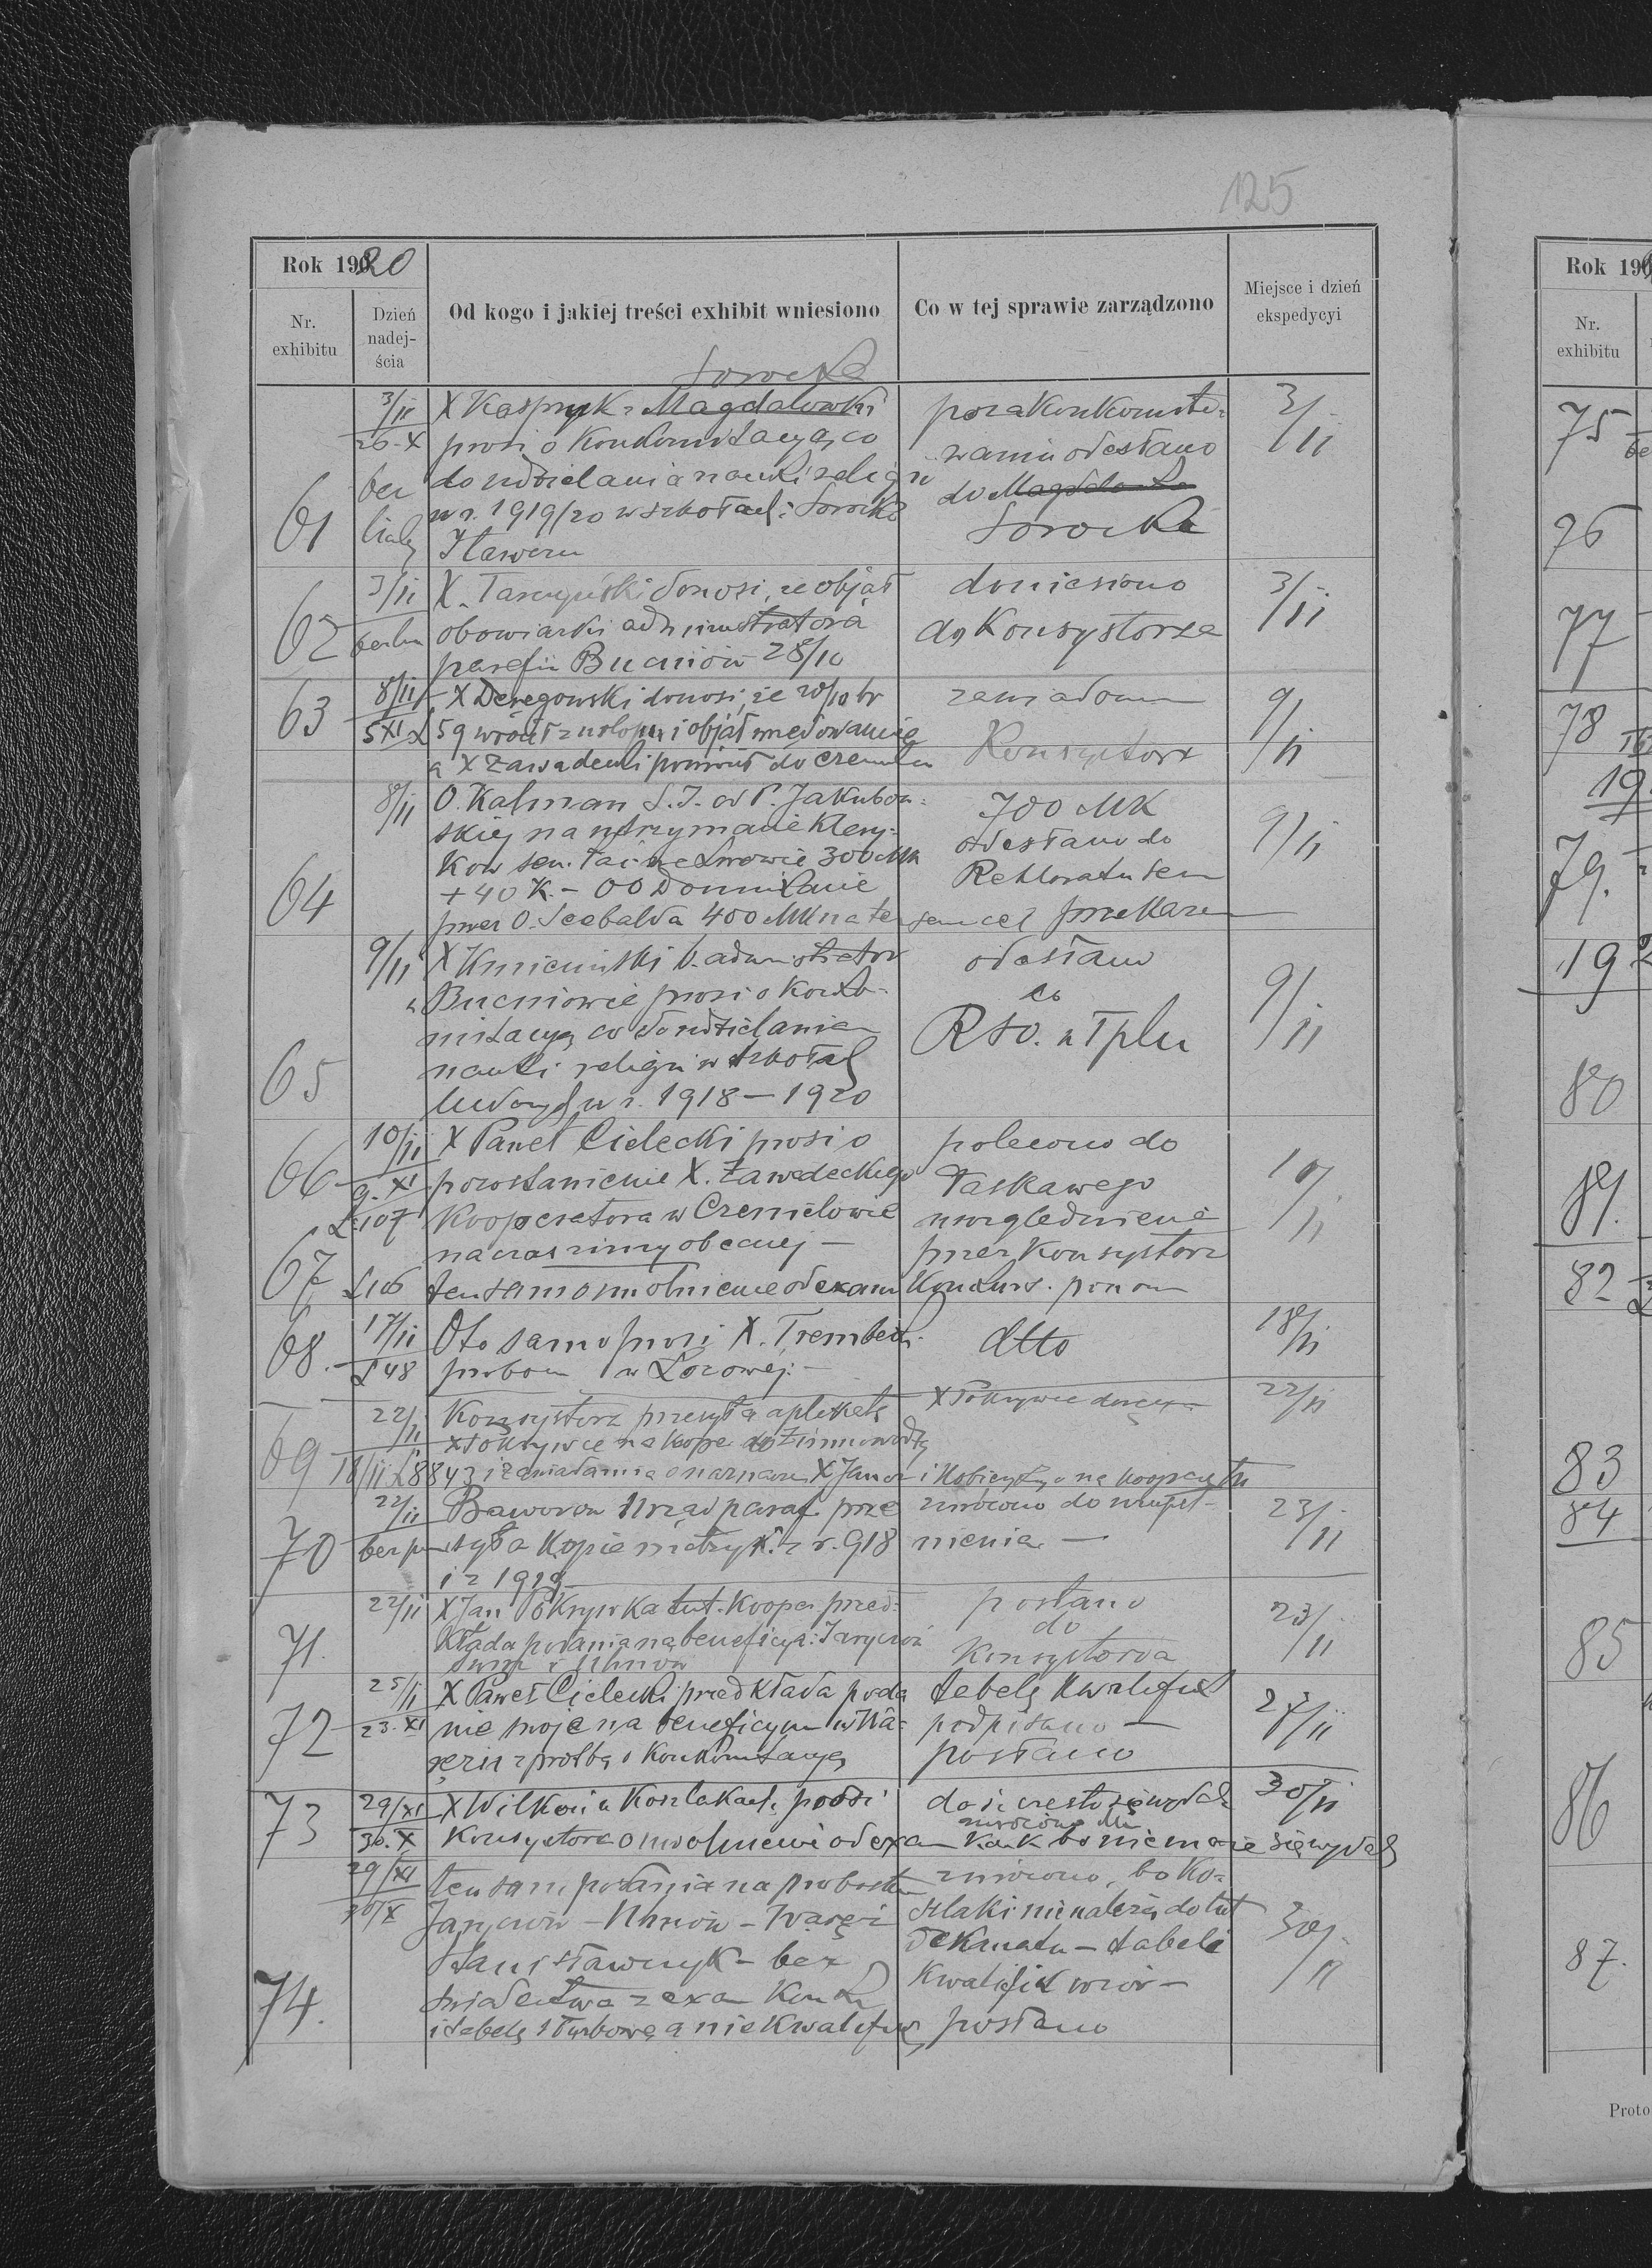 125
Rok 1920
Nr. exhibitu
Dzień nadejścia
Od kogo i jakiej treści exhibit wniesiono
Co w tej sprawie zarządzono
Miejsce i dzień ekspedycyi
Sorocka
61
3/11
26.X
bez
liczby
X Kasprzyk z Magdalowki
prosi o Konkomitacyą co
do udzielania nauki religii
w r. 1919/20 w szkołach: Sorocko
Iławcza
po zakonkomito-
waniu odesłano
do Magdalowka
Sorocka
3/11
62
3/11
bez lu
X. Tarczyński donosi, że objął
obowiązki administratora
parafii Bucniów 28/10
doniesiono
do Konsystorza
3/11
63
8/11
5 XI L 59
X Deręgowski donosi, że 20/10 br
wrócił z urlopu i objął urzędowanie
a X Zawadecki powrócił do Czernil
zawiadom
Konsystorz
9/11
64
8/11
O. Kalman S.J. od P. Jakubow-
skiej na utrzymanie klery-
ków sem. łać. we Lwowie 300 MK
+ 40 K. – OO Dominikanie
przez O. Seebalda 400 MK na ten sam cel przekaz
700 MK
odesłano do
Rektoratu sem
9/11
65
9/11
X Kmieciński b. administrator
w Bucniowie prosi o konko-
mitacyą co do udzielania
nauki religii w szkołach
ludowych w r. 1918 – 1920
odesłano
do
RSO. w Tplu
9/11
66
10/11
9. XI
L 107
X Paweł Cielecki prosi o
pozostawienie X. Zawadeckiego
Kooperatora w Czernielowie
na czas zimy obecnej –
polecono do
łaskawego
uwzględnienia
przez Konsystorz
10/11
67
L 106
ten samo uwolnienie od exam Konkurs. ponow
68.
17/11
L 48
O to samo prosi X. Trembeck.
probow w Łozowej. –
dtto
18/11
69
22/11
18/11 L 8843
Konsystorz przesyła aplikatę
X Pokrywce na koope. do Zimnowody
i zawiadamia o naznacz X Jana
X Pokrywce doręcz
22/11
70
22/11
bez nu
Baworow Urząd paraf. prze
syła kopie metryk. z r. 918
i z 1919
zwrócono do uzupeł-
nienia –
23/11
71.
22/11
X Jan Pokrywka tut. Kooper. przed-
kłada podania na beneficya: Jaryczów
i Uhnów
posłano
do
Konsystorza
23/11
72
25/11
23. XI
X Paweł Cielecki przedkłada poda
nie swoje na beneficyum w Wa-
ręzu z prośbą o Konkomitacyą
tabelę kwalifik
podpisano –
posłano
27/11
73
29/XI
30. X
X Wilk w Koszlakach prosi
Konsystorza o uwolnieni od exa
zwrócono
30/11
74.
29/XI
30/X
ten sam podania na probostw
Jaryczów – Uhnów – Waręż
Stanisławczyk – bez
świadectwa z exam Konk
i tabelę służbową a nie kwalifik
zwrócono, bo Ko-
szlaki nie należą do tut
Dekanatu – tabelę
kwalifik wzór –
posłano
30/11
Rok 190
Nr. exhibitu
75
76
77
78
79.
80
81.
82
83
84
85
86
87.
Proto